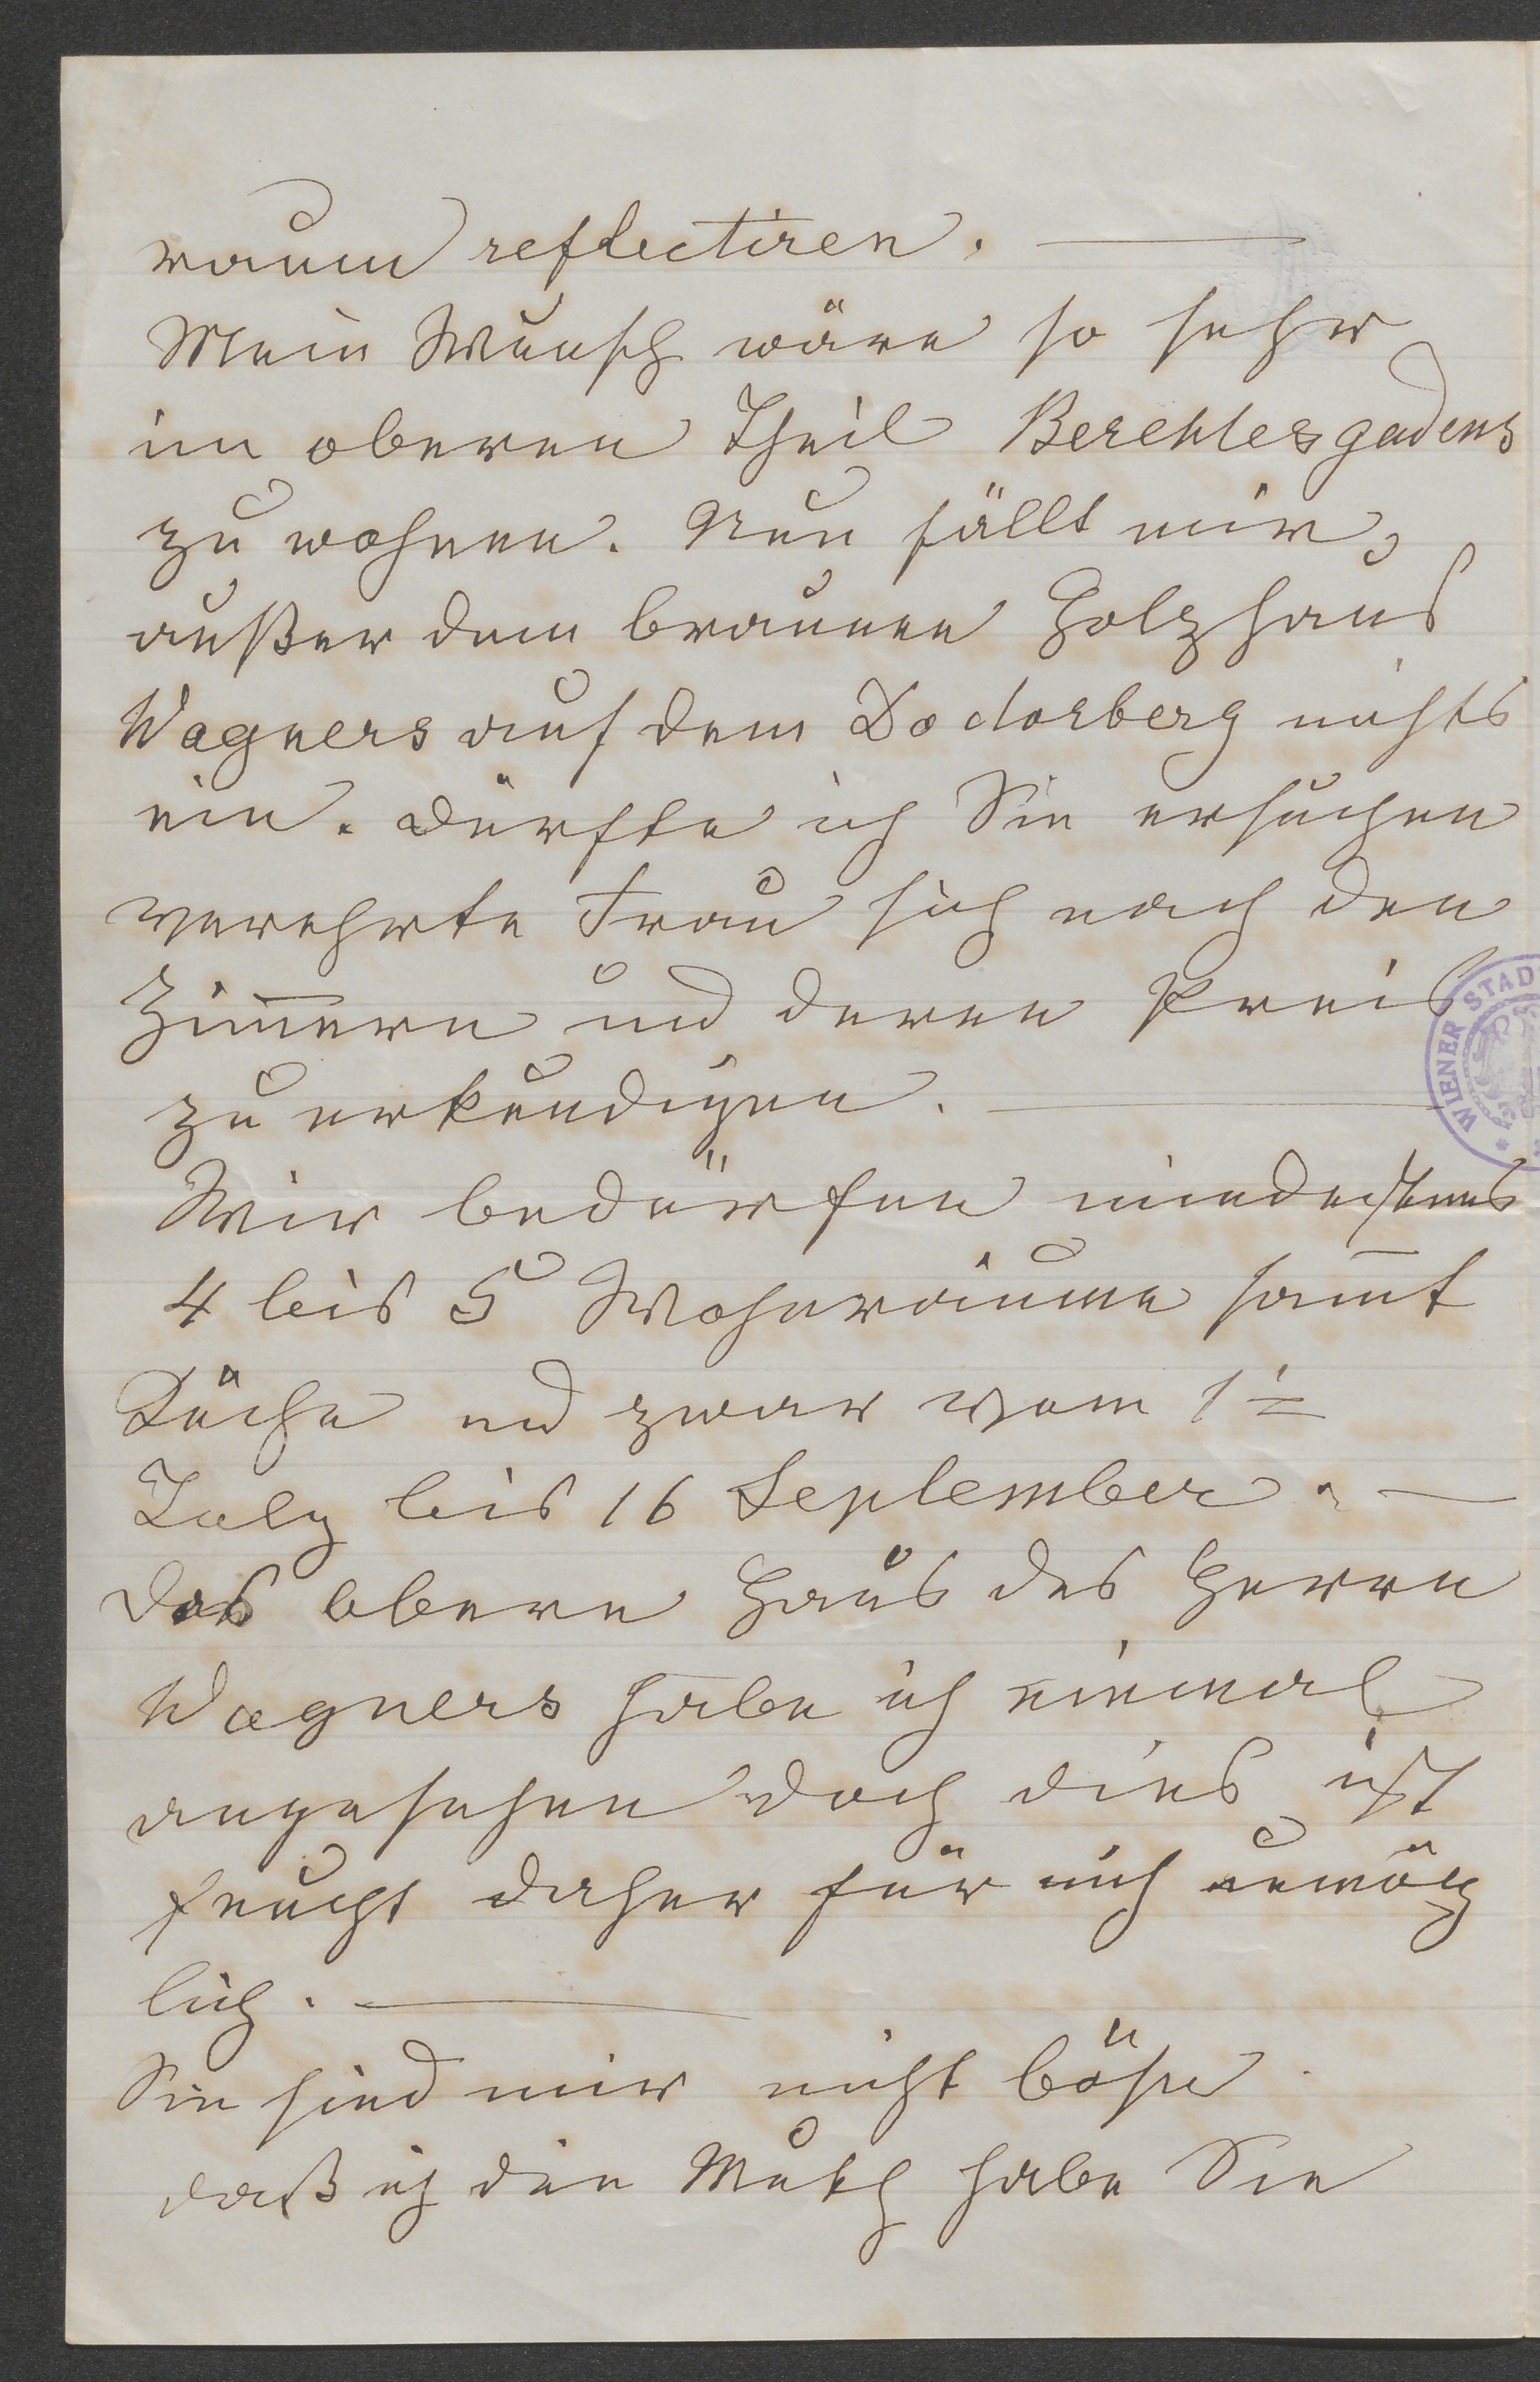 raum reflectiren. —
Mein Wunsch wäre so sehr
im oberen Theil Berchtesgadens
zu wohnen. Nun fällt mir,
außer dem braunen Holzhaus
Wagners auf dem Doctorberg nichts
ein. Dürfte ich Sie ersuchen
verehrte Frau sich nach den
Zim̄ern und deren Preis
zu erkundigen. —
Wir bedürfen mindestens
4 bis 5 Wohnräume sam̄t
Küche und zwar vom 1ten
July bis 16 September. —
Das obere Haus des Herrn
Wagners habe ich einmal
angesehen doch dies ist
feucht daher für mich unmög
lich. —
Sie sind mir nicht böse
daß ich den Muth habe Sie
WIENER STAD